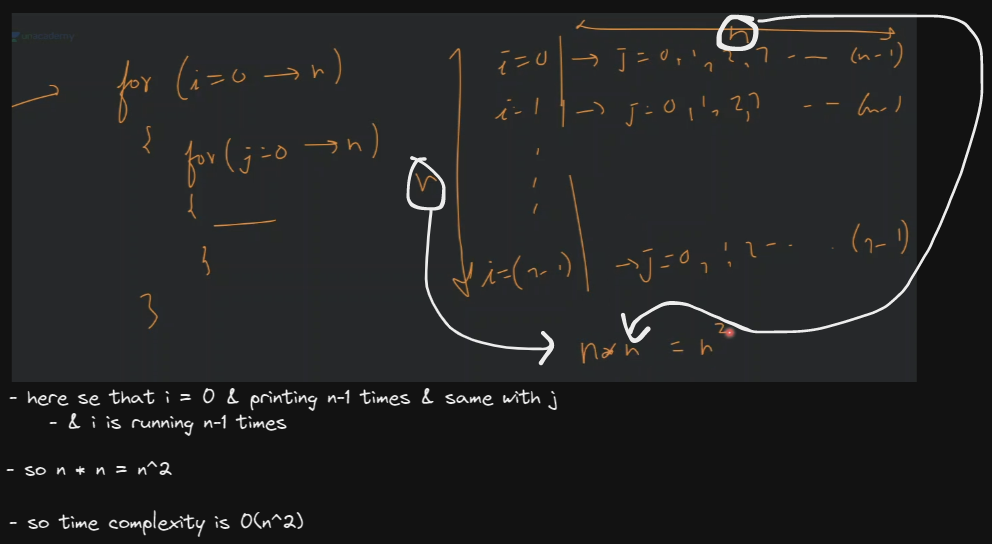 unacademy
for (i=0 → n)
{
for(j=0 → n)
{
}
}
n
n
i=0 | → j=0,1,2,3 -- -- (n-1)
i=1 | → j=0,1,2,3 -- -- (n-1)
i=(n-1) | → j=0,1,2 -- .. (n-1)
n*n = n²
- here se that i = 0 & printing n-1 times & same with j
- & i is running n-1 times
- so n * n = n^2
- so time complexity is O(n^2)